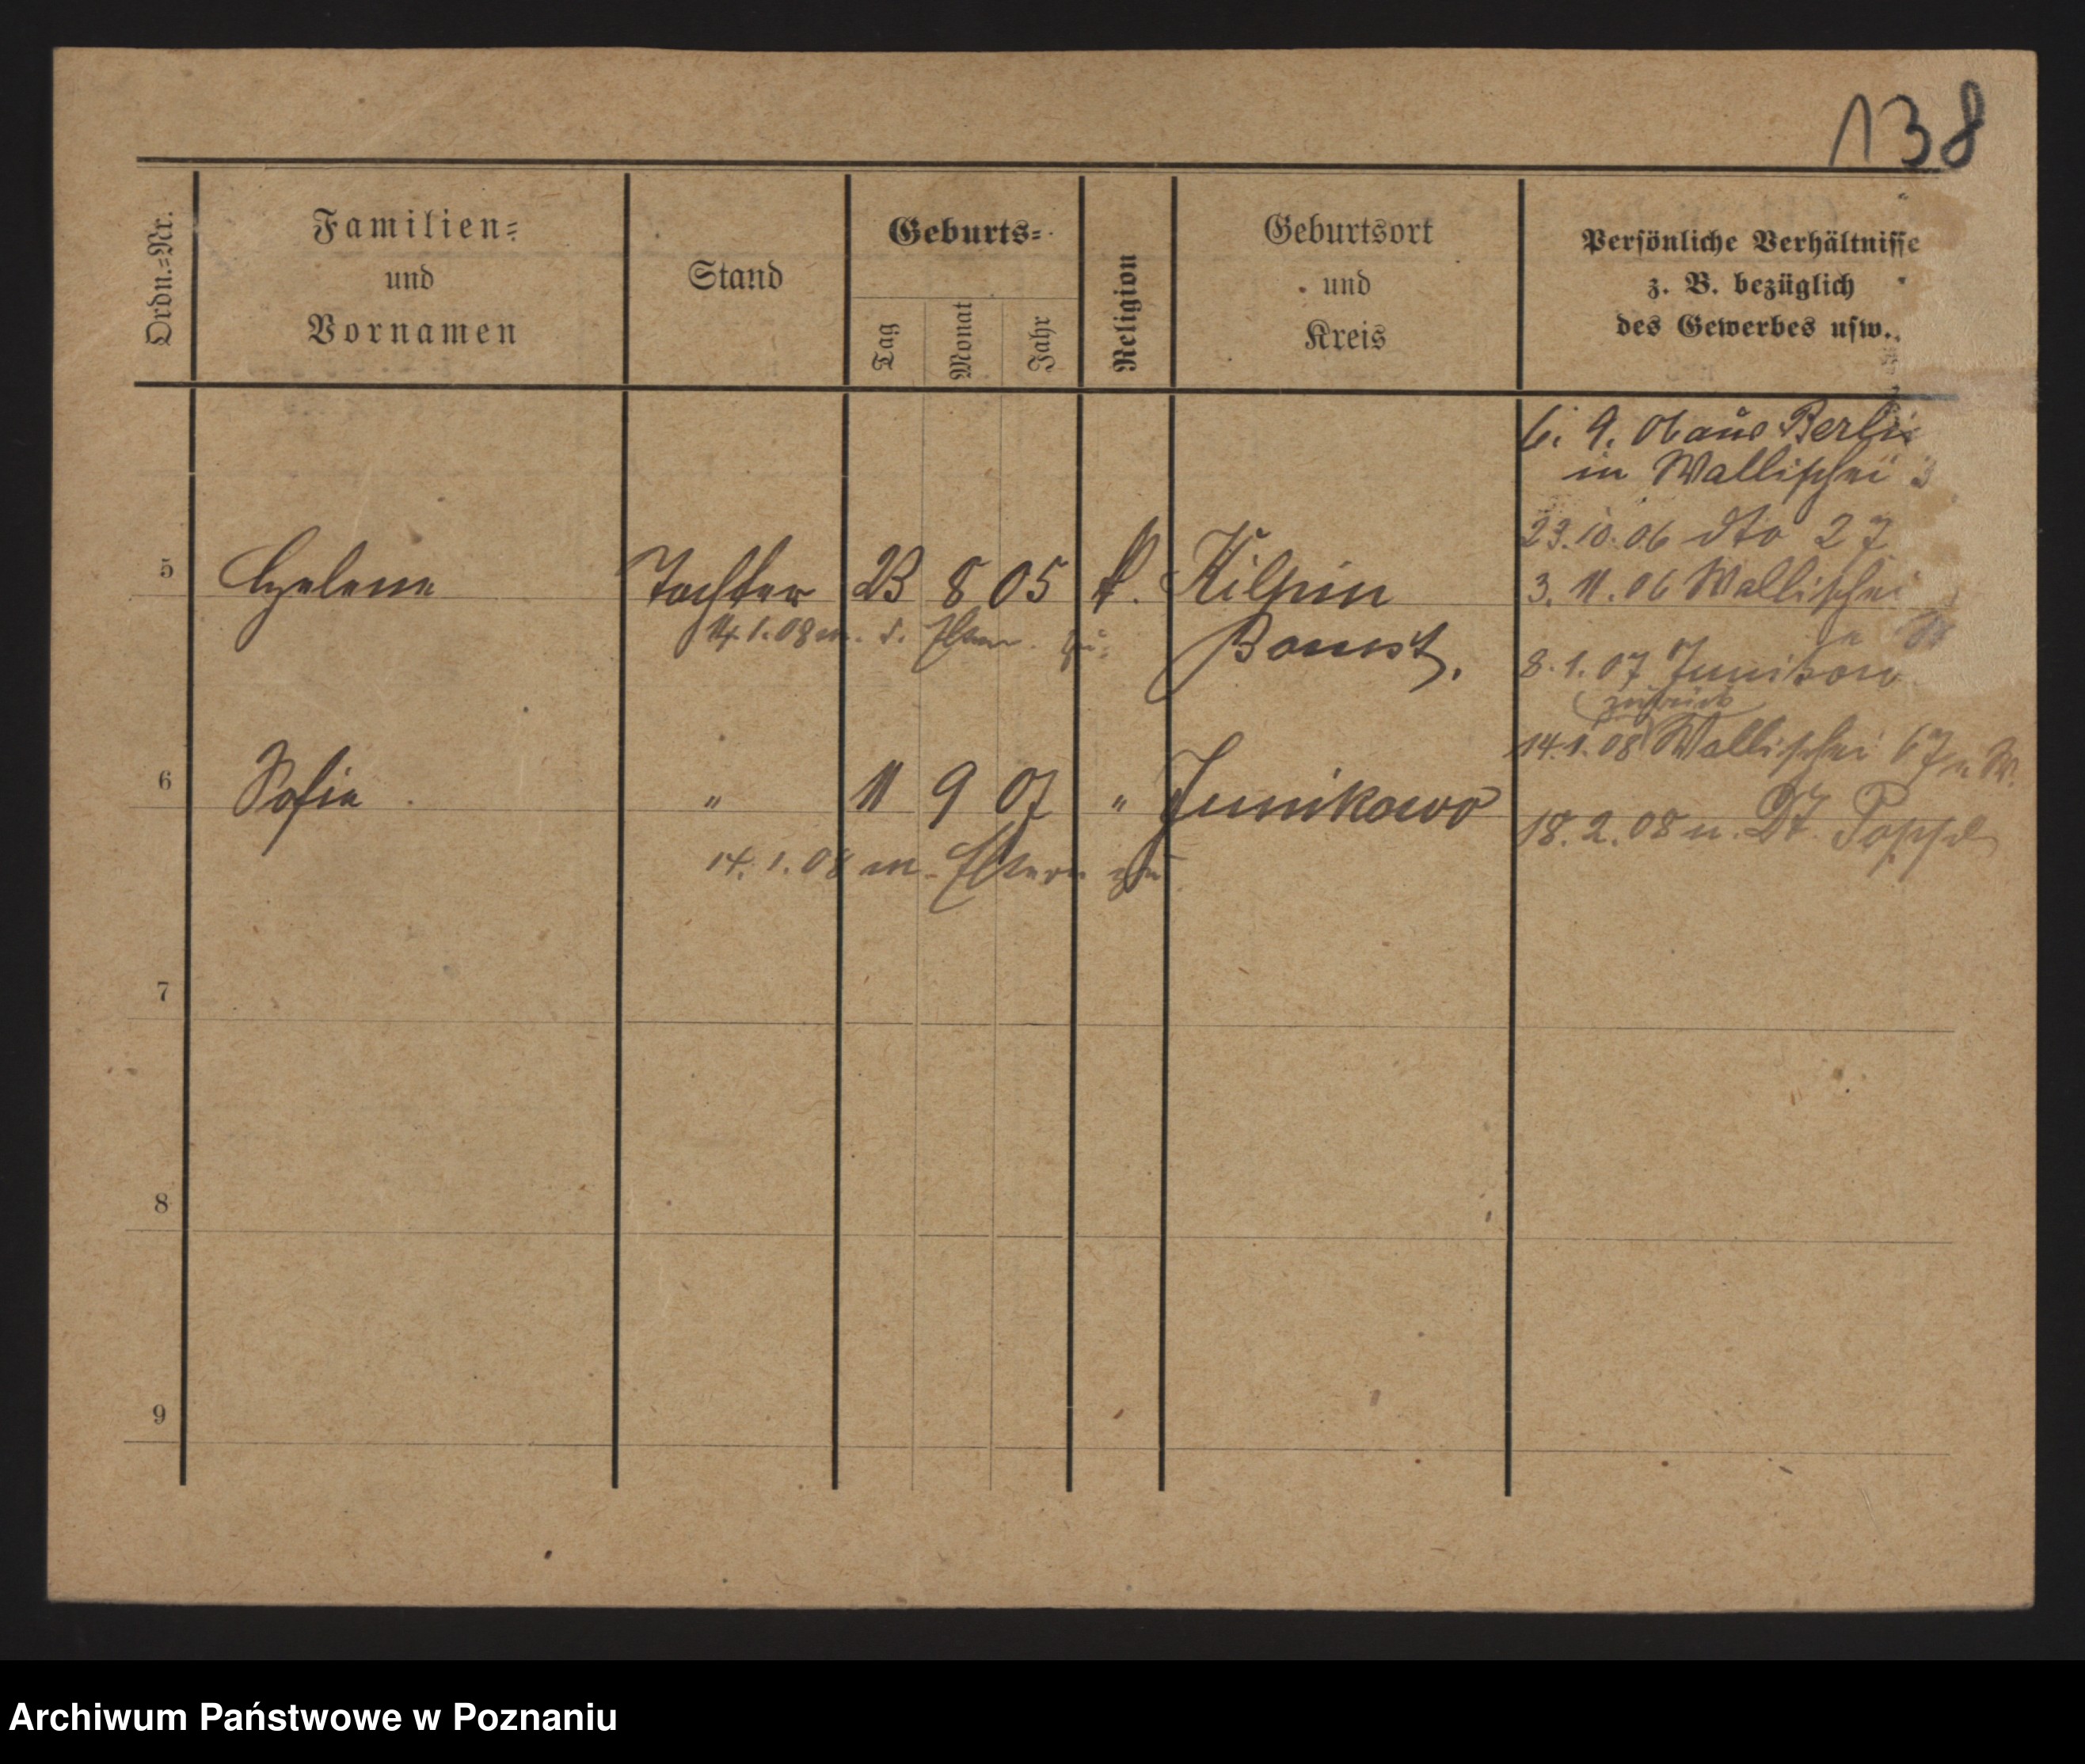 138
Ordn.=Nr.
Familien=
und
Vornamen
Stand
Geburts=
Tag
Monat
Jahr
Religion
Geburtsort
und
Kreis
Persönliche Verhältnisse
z. B. bezüglich
des Gewerbes usw.
6. 9. 06 aus Berlin
in Wallischei 3
23.10.06 dto 27
3. 11. 06 Wallischei
8. 1. 07 Junikowo
zurück
14.1.08 Wallischei 67
18. 2. 08 n.
5 Helene Tochter 23 8 05 k. Kilpin
14.1.08 m. d. Eltern zu:
Bomst.
6 Sofia " 11 9 07 " Junikowo
14. 1. 08 m. Eltern zu
7
8
9
Archiwum Państwowe w Poznaniu